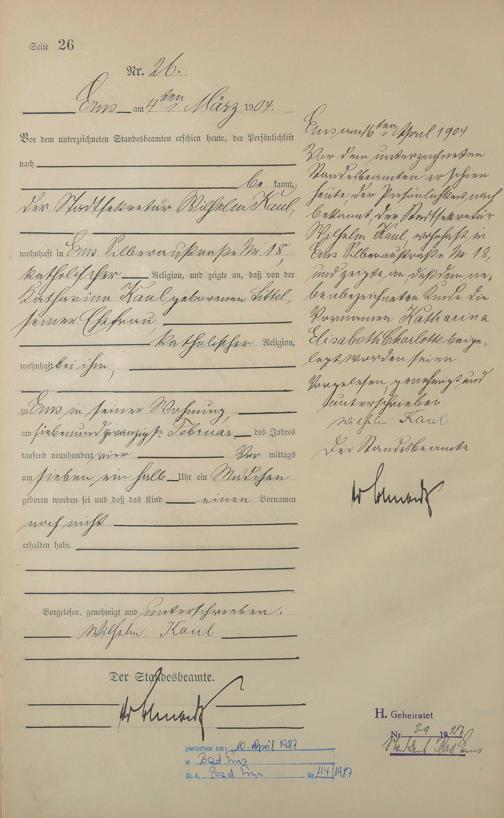 Seite 26
Nr. 26.
Ems am 4ten März 1904.
Vor dem unterzeichneten Standesbeamten erschien heute, der Persönlichkeit
nach
be kannt,
der Stadtsekretär Wilhelm Kaul,
wohnhaft in Ems Silberaustraße Nr. 18,
katholischer Religion, und zeigte an, daß von der
Katharina Kaul geborenen Littel,
seiner Ehefrau
katholischer Religion,
wohnhaft bei ihm,
zu Ems in seiner Wohnung,
am siebenundzwanzigsten Februar des Jahres
tausend neunhundert vier Vor mittags
um sieben ein halb Uhr ein Mädchen
geboren worden sei und daß das Kind einen Vornamen
noch nicht
erhalten habe.
Vorgelesen, genehmigt und unterschrieben.
Wilhelm Kaul
Der Standesbeamte.
Ems am 16ten April 1904
Vor dem unterzeichneten
Standesbeamten erschien
heute, der Persönlichkeit nach
bekannt, der Stadtsekretär
Wilhelm Kaul, wohnhaft in
Ems Silberaustraße Nr. 18,
und zeigte an, daß dem ne-
benbezeichneten Kinde die
Vornamen Katharina
Elisabeth Charlotte beige-
legt worden seien.
Vorgelesen, genehmigt und
unterschrieben.
Wilhelm Kaul
Der Standesbeamte
H. Geheiratet
Nr. 29 1927
Standesamt Bad Ems
gestorben am: 10. April 1987
in Bad Ems
St.A. Bad Ems Nr. 114/1987